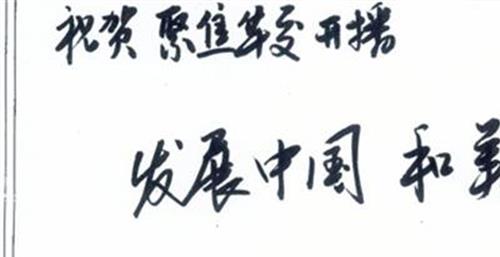 祝贺 聚焦华交 开播
发展中国 和